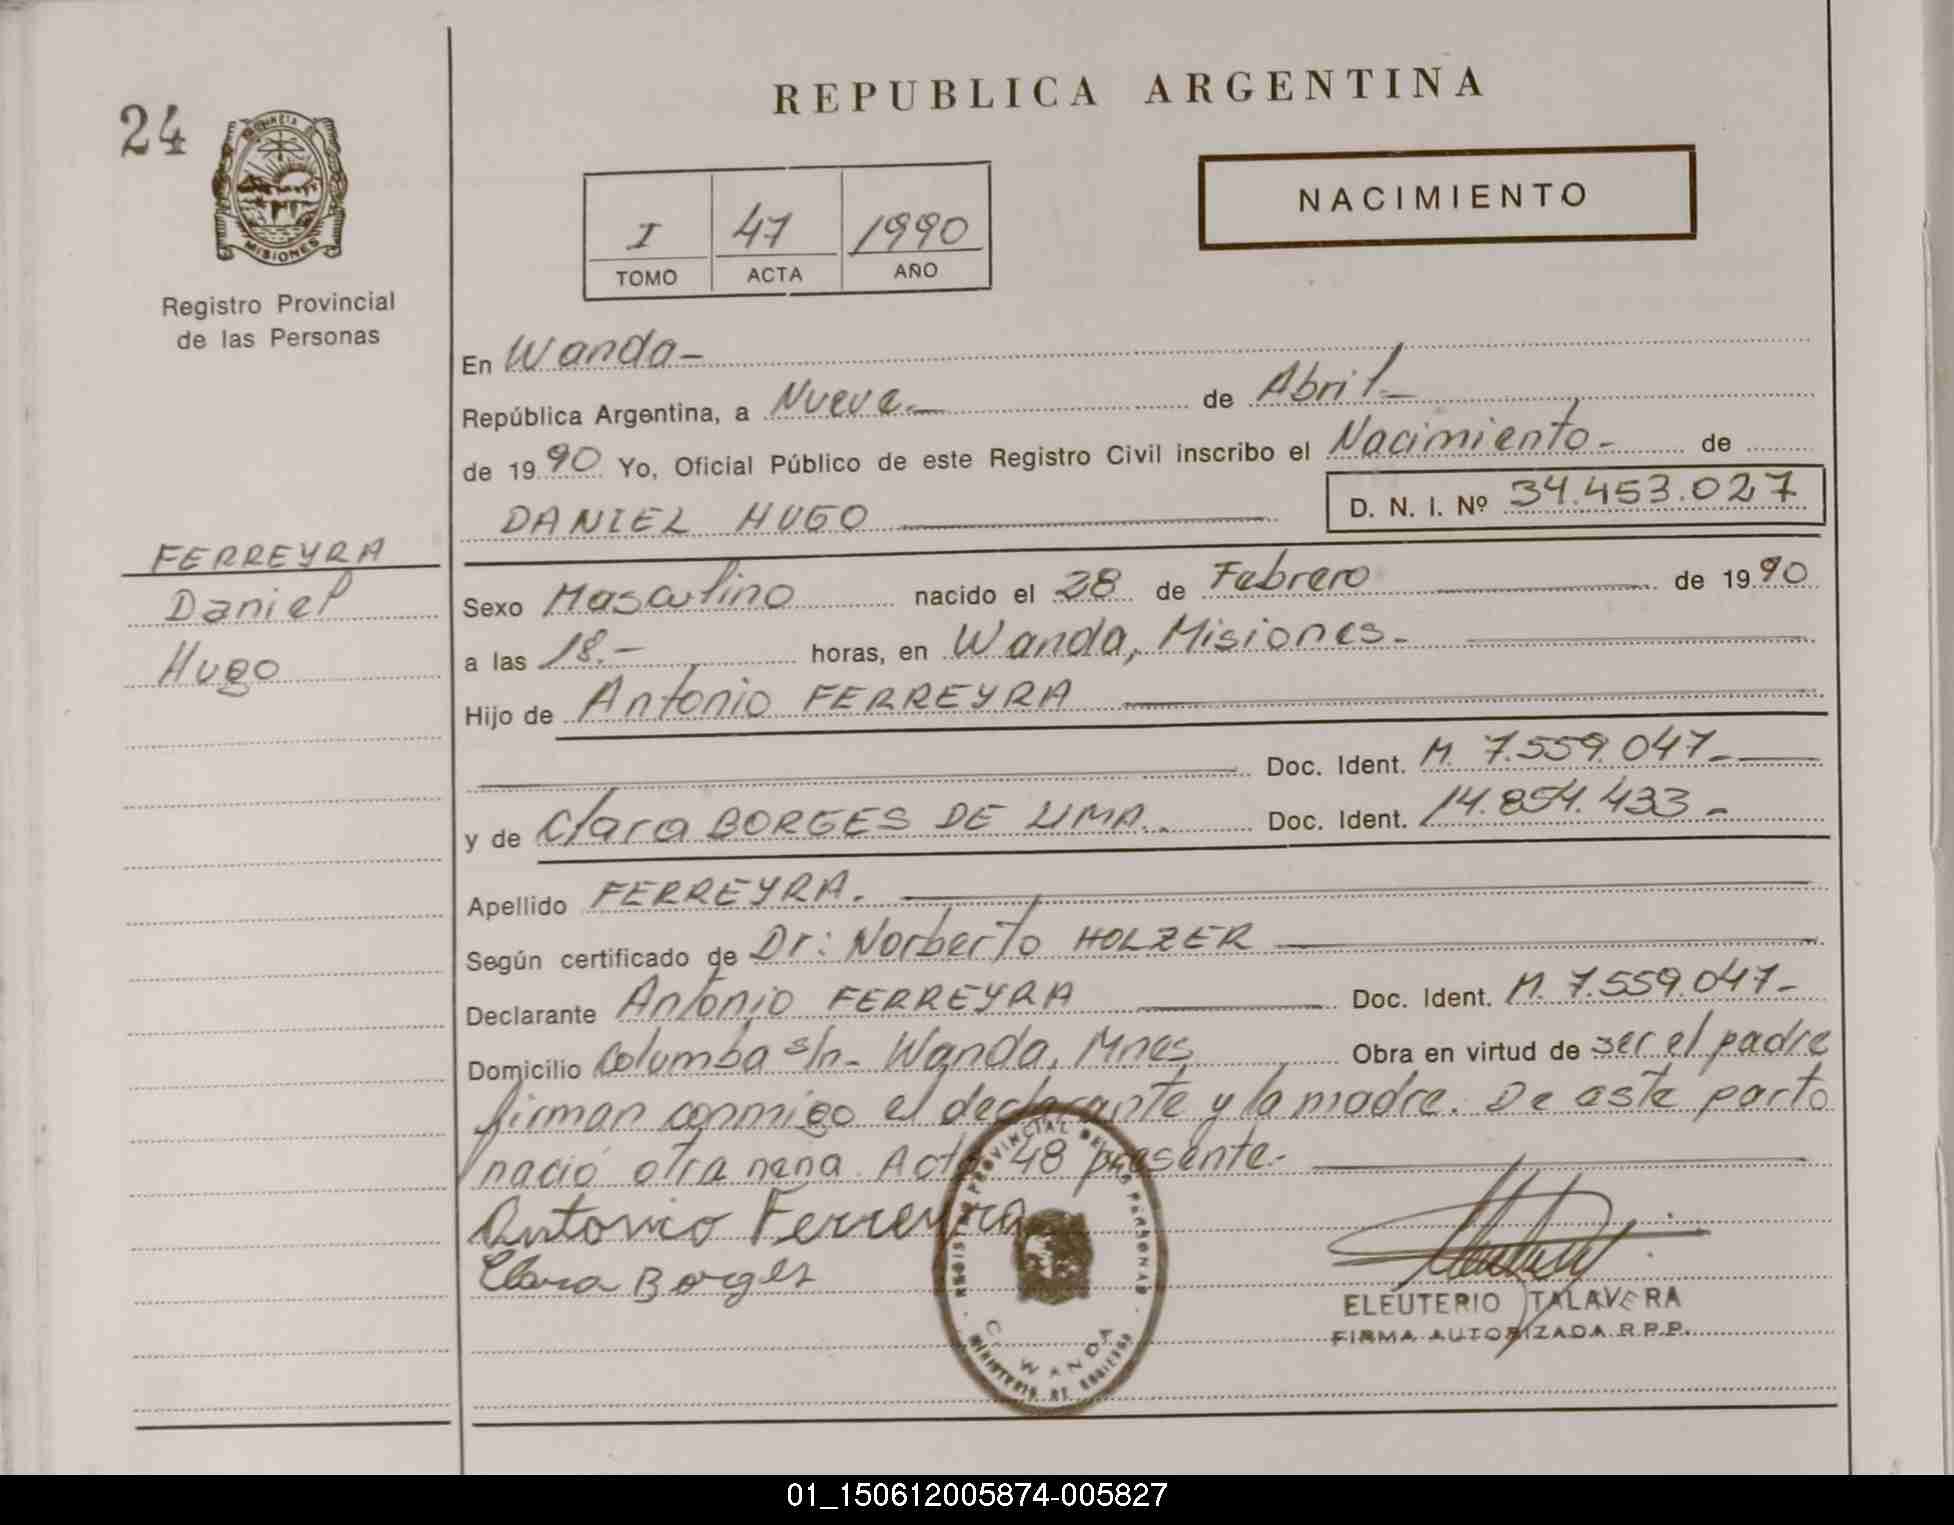 24
PROVINCIA DE
MISIONES
Registro Provincial
de las Personas
FERREYRA
Daniel
Hugo
REPUBLICA ARGENTINA
NACIMIENTO
I 47 1990
TOMO ACTA AÑO
En Wanda-
República Argentina, a Nueve de Abril
de 1990 Yo, Oficial Público de este Registro Civil inscribo el Nacimiento- de
DANIEL HUGO D. N. I. Nº 34.453.027
Sexo Masculino nacido el 28 de Febrero de 1990
a las 18.- horas, en Wanda, Misiones-
Hijo de Antonio FERREYRA
Doc. Ident. M. 7.559.047-
y de Clara BORGES DE LIMA. Doc. Ident. 14.854.433-
Apellido FERREYRA.
Según certificado de Dr: Norberto HOLZER
Declarante Antonio FERREYRA Doc. Ident. M. 7.559.047-
Domicilio Columba s/n- Wanda, Mnes Obra en virtud de ser el padre
firman conmigo el declarante y la madre. De este parto
nació otra nena. Acta 48 presente.-
Antonio Ferreyra
Clara Borges
REGISTRO PROVINCIAL DE LAS PERSONAS
WANDA
MINISTERIO DE GOBIERNO
ELEUTERIO TALAVERA
FIRMA AUTORIZADA R.P.P.
01_150612005874-005827